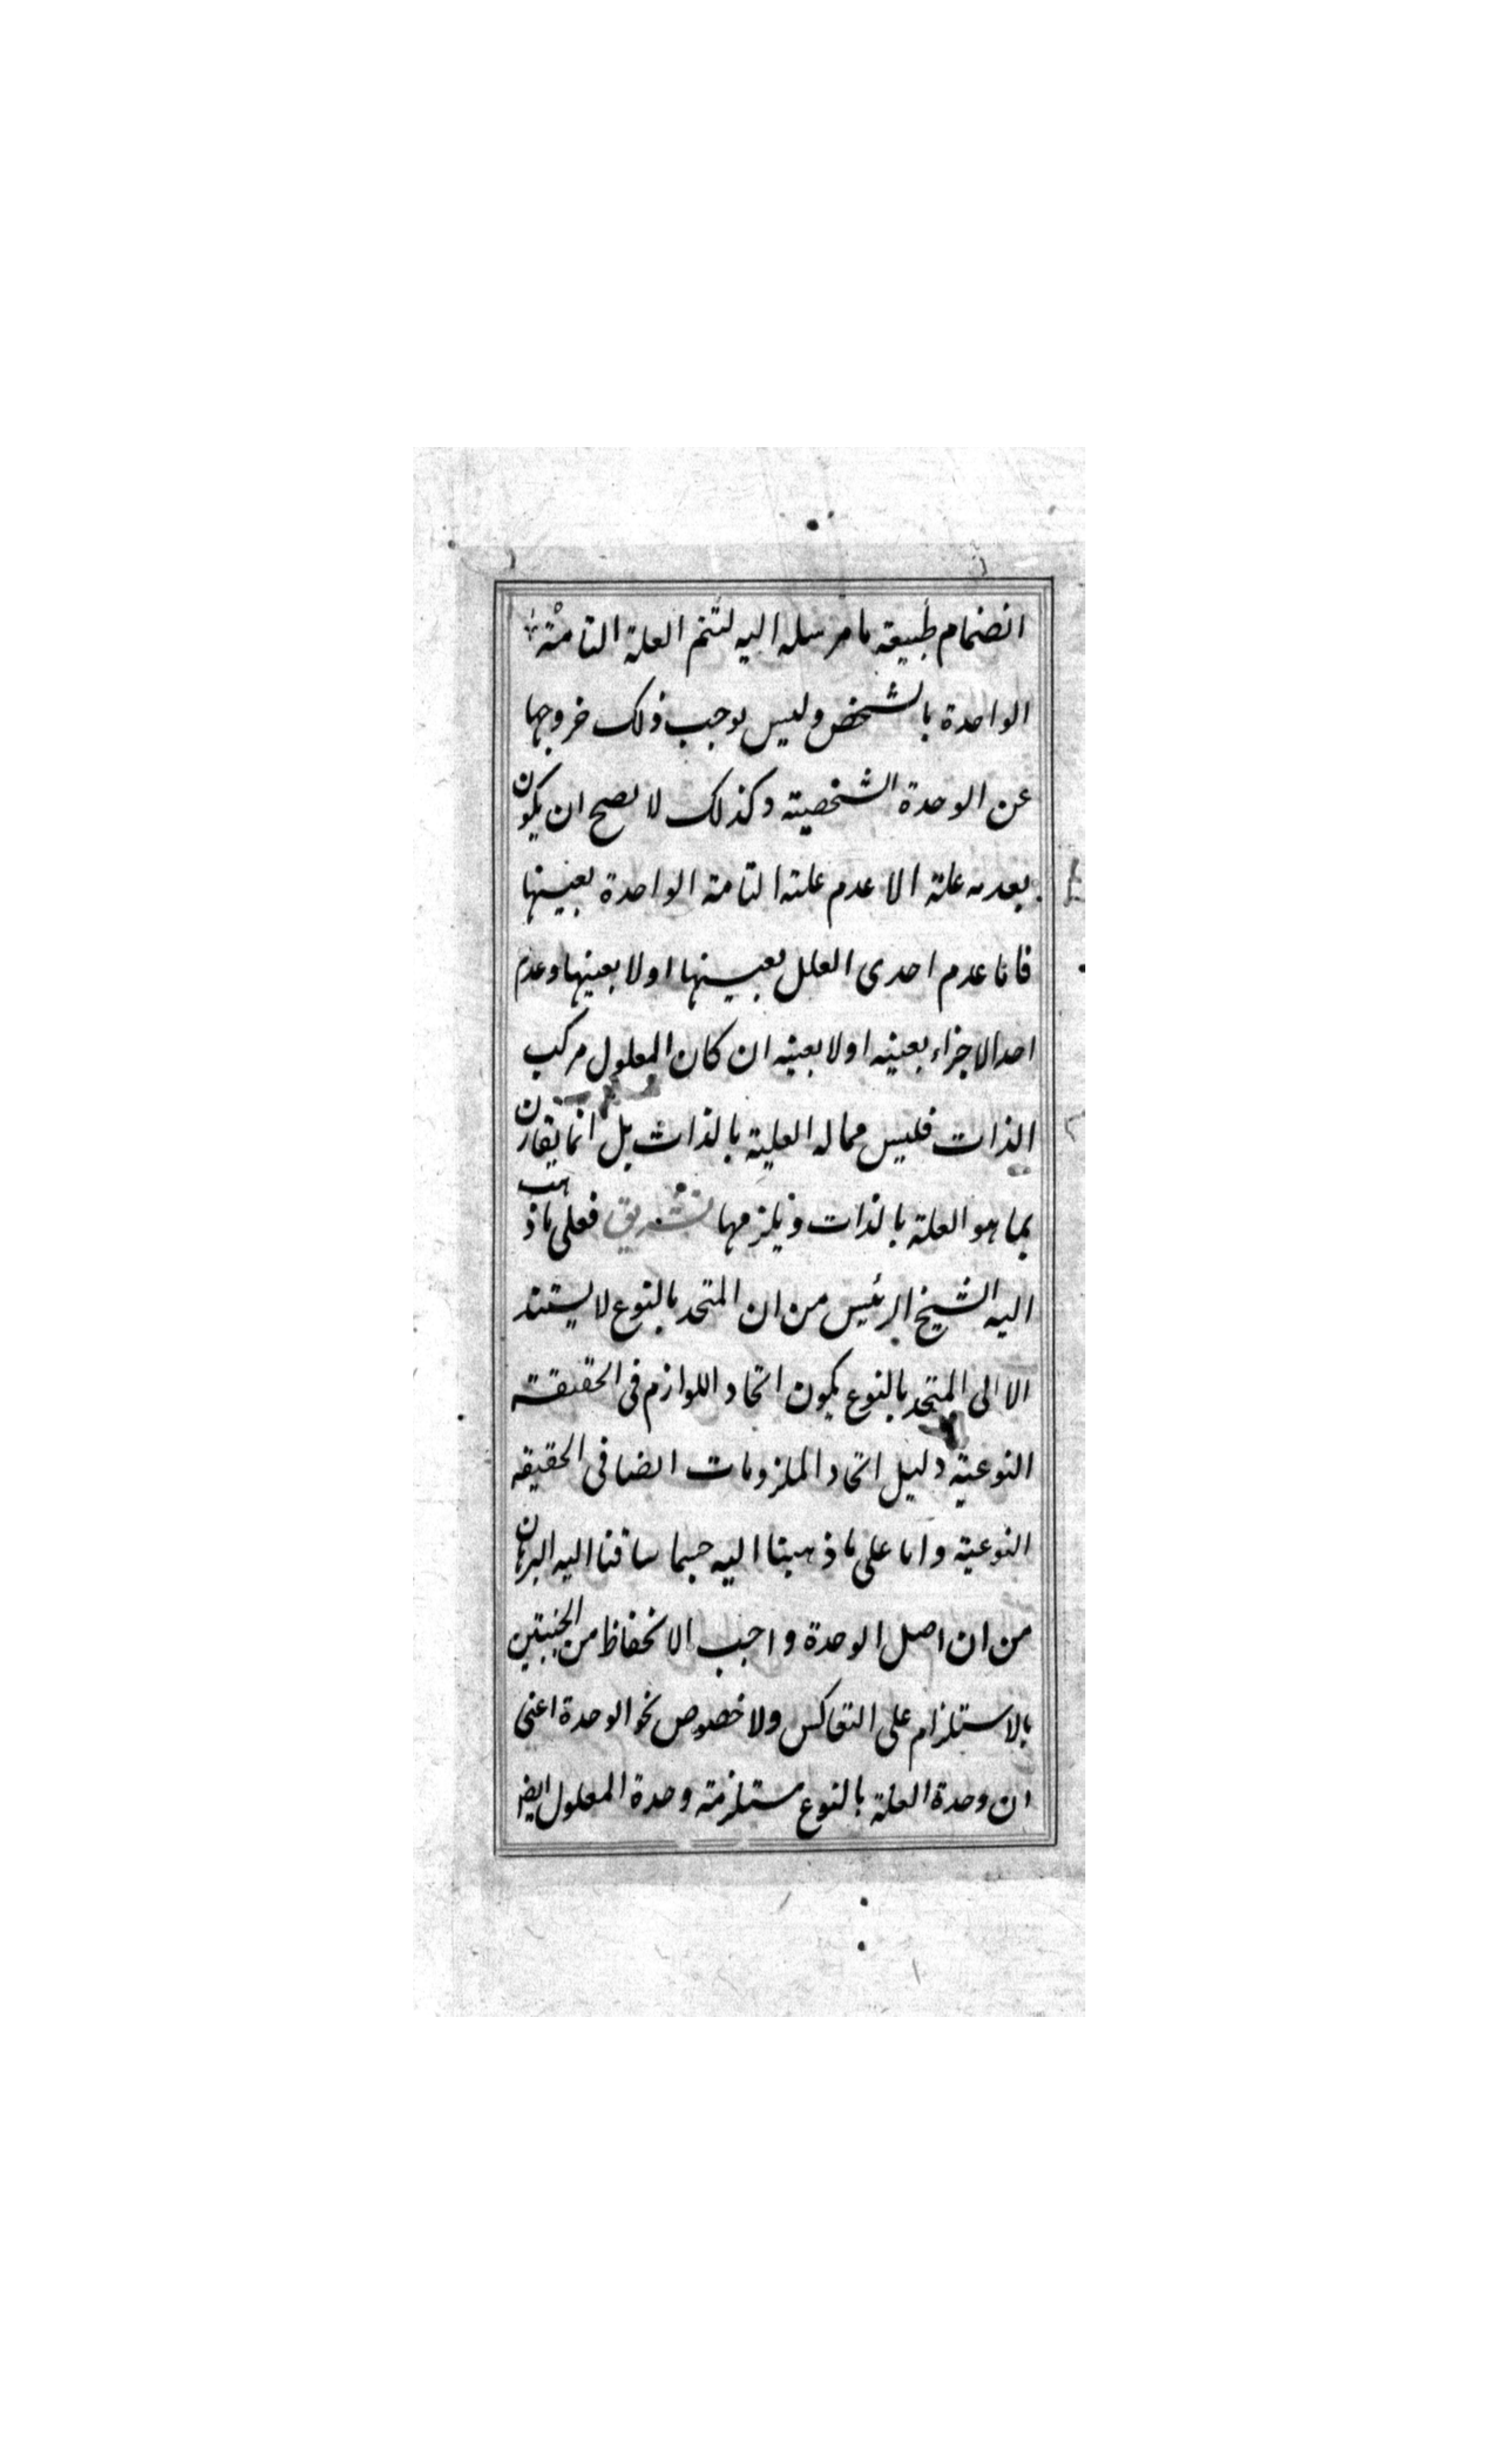 انضمام طبيعة ما مرسلة اليه لتتم العلة التامة
الواحدة بالشخص وليس يوجب ذلك خروجها
عن الوحدة الشخصية وكذلك لا يصح ان يكون
بعدمه علة الا عدم علته التامة الواحدة بعينها
فاما عدم احدى العلل بعينها او لا بعينها وعدم
احد الاجزاء بعينه او لا بعينه ان كان المعلول مركب
الذات فليس مما له العلية بالذات بل انما يقارن
بما هو العلة بالذات ويلزمها تشريق فعلى ما ذهب
اليه الشيخ الرئيس من ان المتحد بالنوع لا يستند
الا الى المتحد بالنوع يكون اتحاد اللوازم فى الحقيقة
النوعية دليل اتحاد الملزومات ايضا فى الحقيقه
النوعية واما على ما ذهبنا اليه حسبما ساقنا اليه البرهان
من ان اصل الوحدة واجب الانحفاظ من الجنبتين
بالاستلزام على التعاكس ولا خصوص نحو الوحدة اعنى
ان وحدة العلة بالنوع مستلزمة وحدة المعلول ايضا